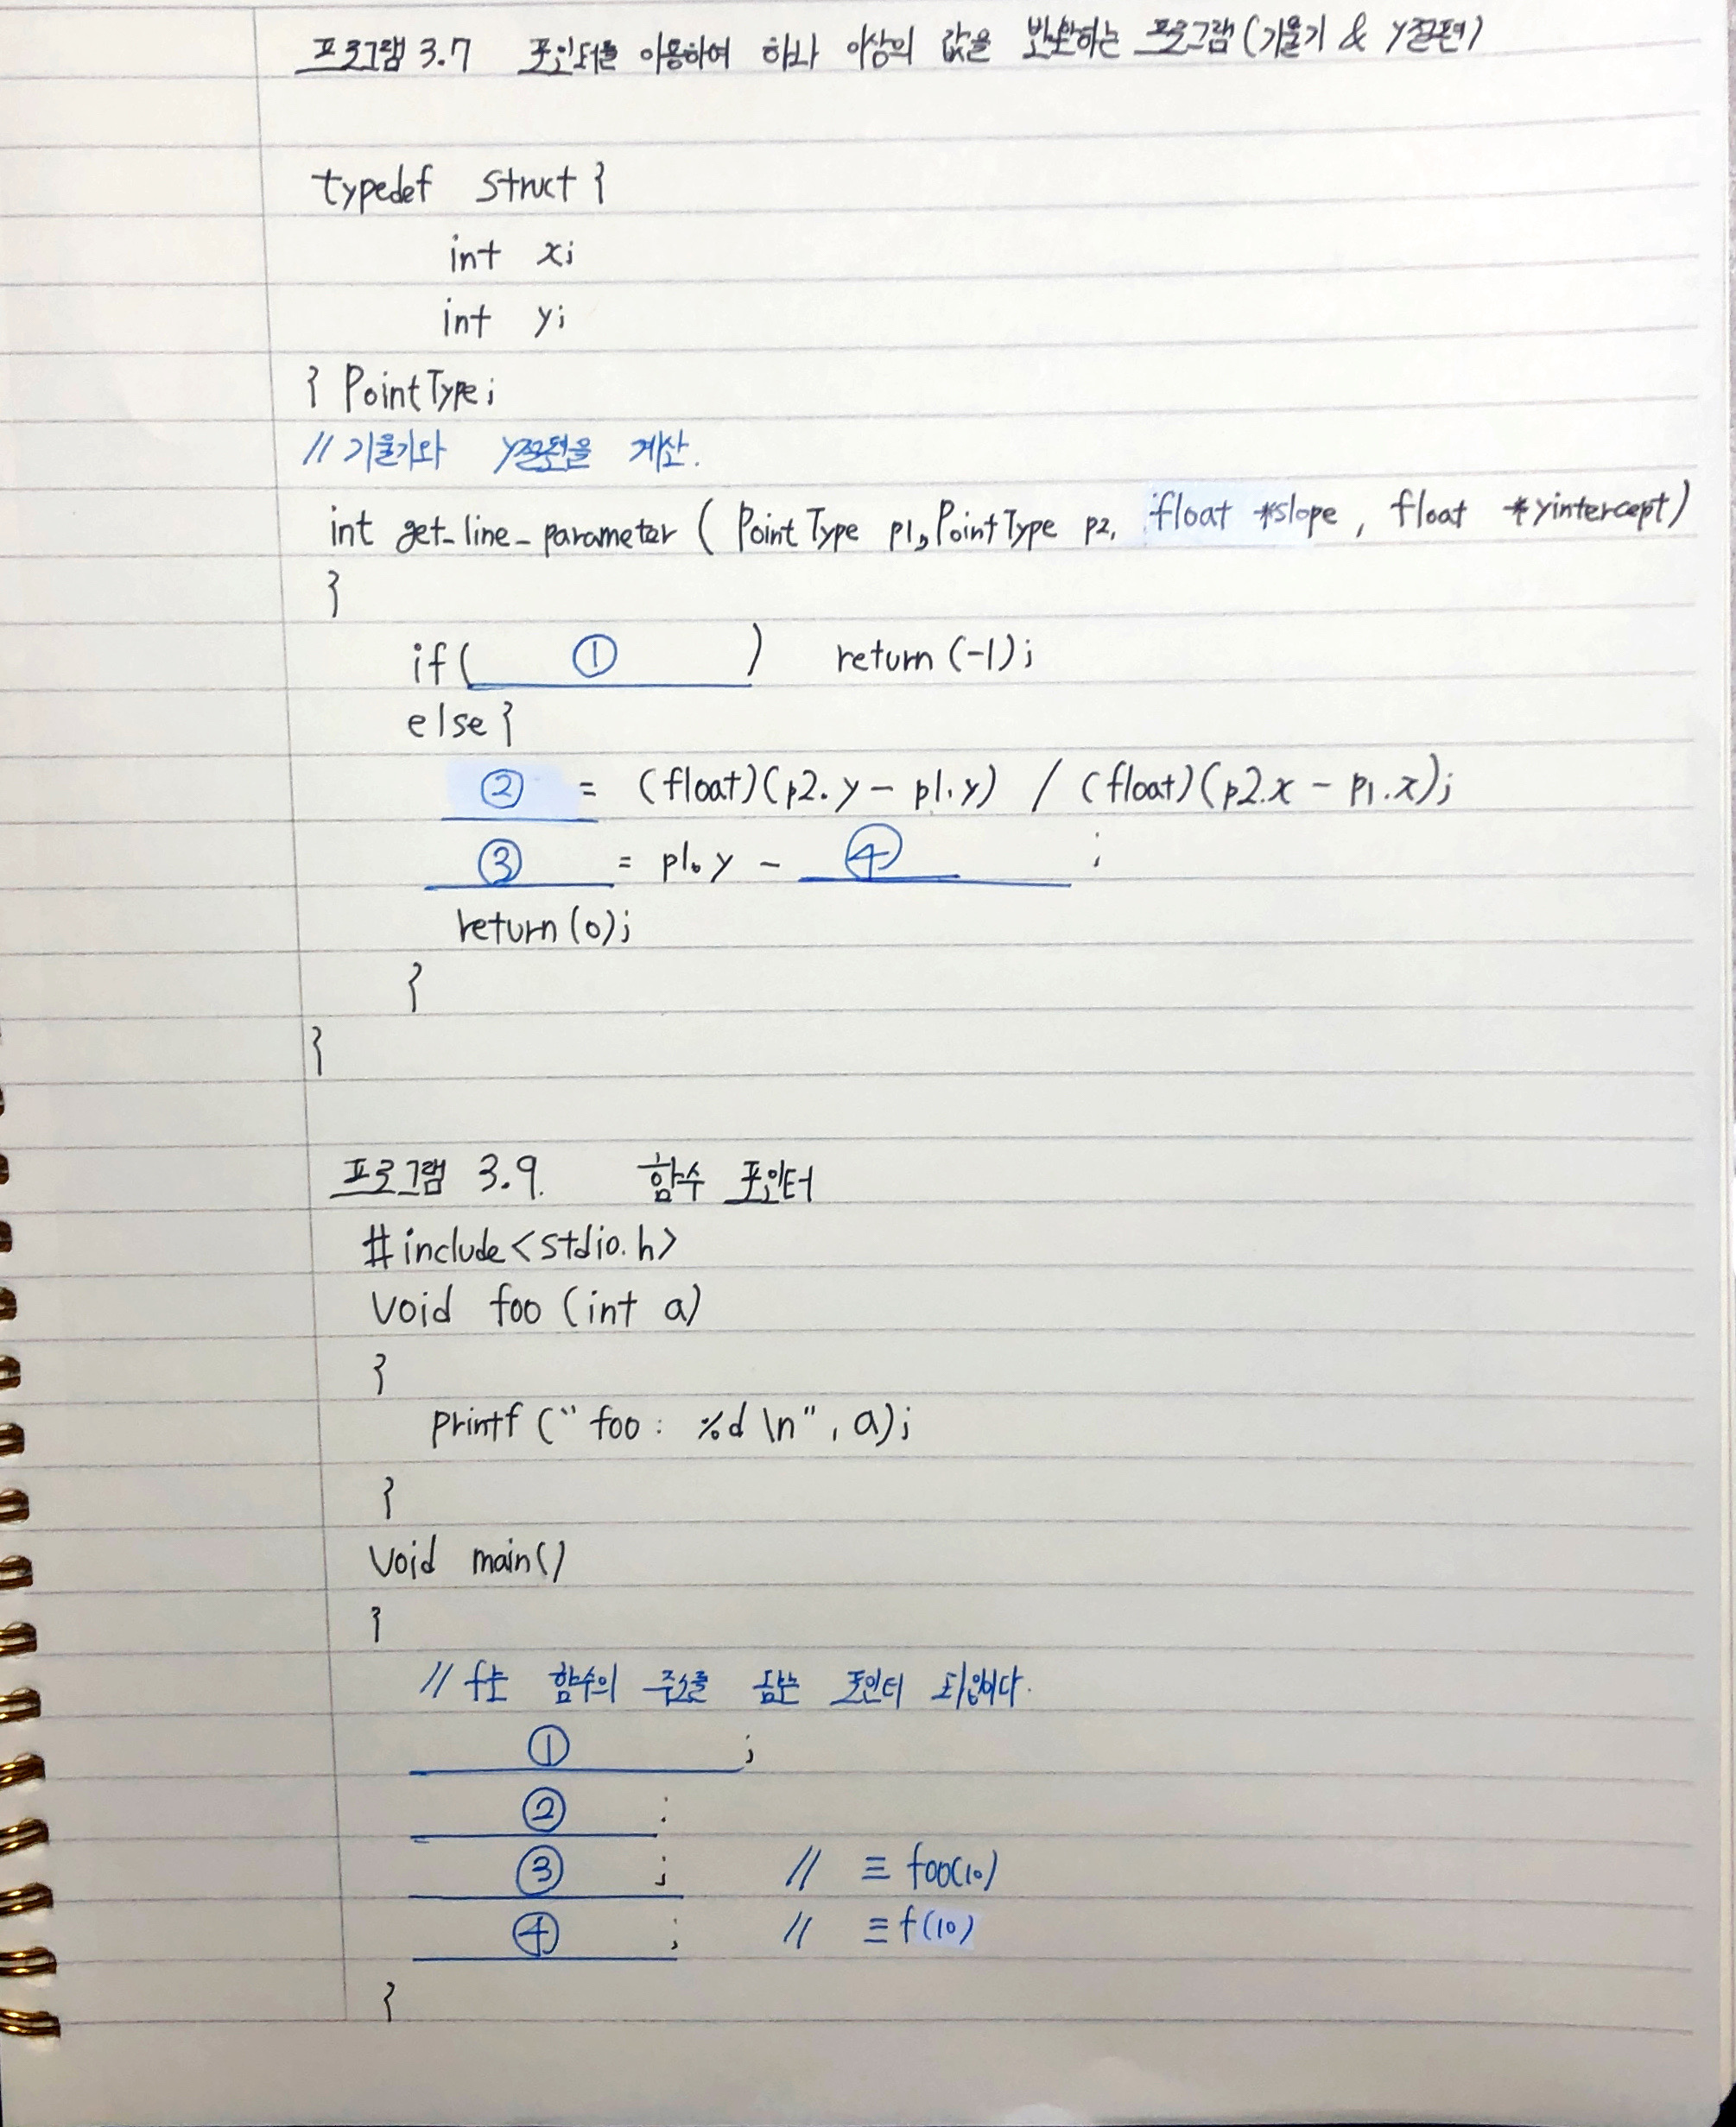 프로그램 3.7 포인터를 이용하여 하나 이상의 값을 반환하는 프로그램 (기울기 & y절편)
typedef struct {
int x;
int y;
} PointType;
// 기울기와 y절편을 계산.
int get_line_parameter ( PointType p1, PointType p2, float *slope, float *yintercept)
{
if( ① ) return (-1);
else {
② = (float)(p2.y - p1.y) / (float)(p2.x - p1.x);
③ = p1.y - ④ ;
return (0);
}
}
프로그램 3.9. 함수 포인터
#include <stdio.h>
void foo (int a)
{
printf ("foo: %d \n", a);
}
void main()
{
// f는 함수의 주소를 담는 포인터 타입이다.
① ;
② ;
③ ; // ≡ foo(10)
④ ; // ≡ f(10)
}